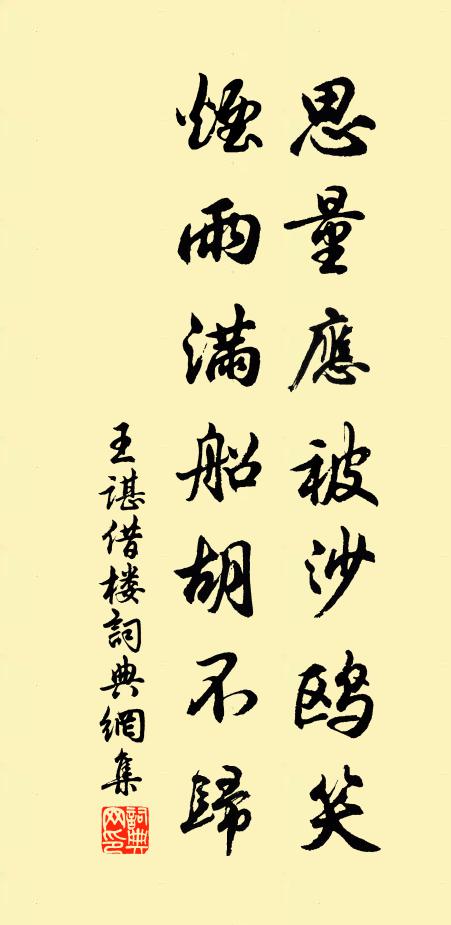 思量應被沙鸥笑
煙雨滿船胡不歸
王谌借楼詞典網集
詞典網印